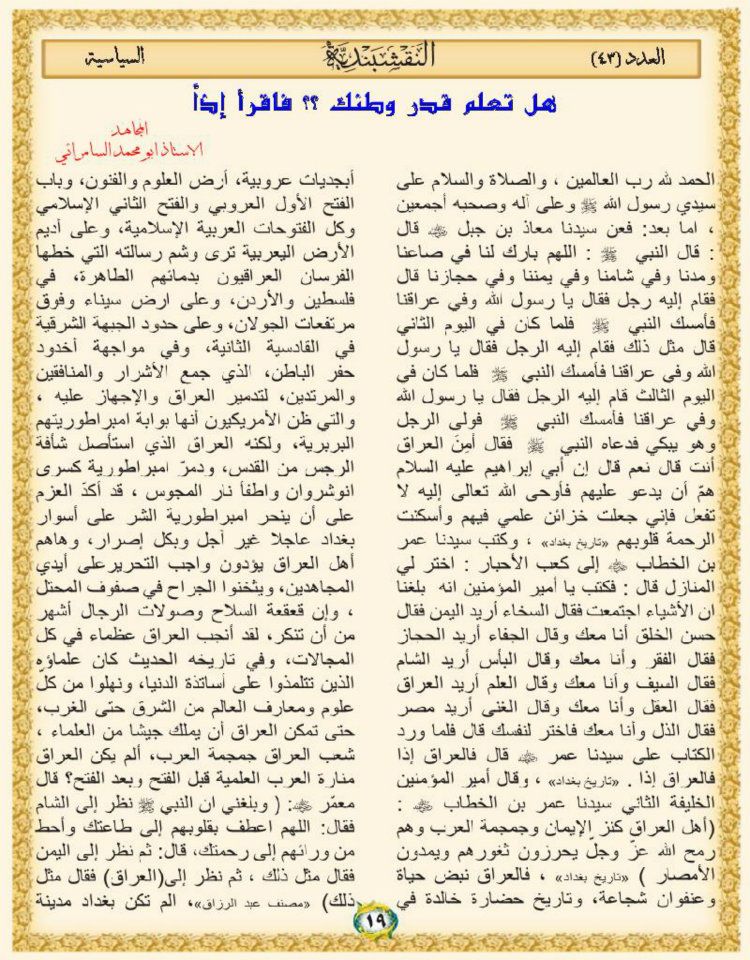 العدد (٤٣)
النقشبندية
السياسية
هل تعلم قدر وطنك ؟؟ فاقرأ إذاً
المجاهد
الاستاذ ابو محمد السامرائي
الحمد لله رب العالمين ، والصلاة والسلام على
سيدي رسول الله ﷺ وعلى آله وصحبه أجمعين
، اما بعد: فعن سيدنا معاذ بن جبل ؓ قال
: قال النبي ﷺ : اللهم بارك لنا في صاعنا
ومدنا وفي شامنا وفي يمننا وفي حجازنا قال
فقام إليه رجل فقال يا رسول الله وفي عراقنا
فأمسك النبي ﷺ فلما كان في اليوم الثاني
قال مثل ذلك فقام إليه الرجل فقال يا رسول
الله وفي عراقنا فأمسك النبي ﷺ فلما كان في
اليوم الثالث قام إليه الرجل فقال يا رسول الله
وفي عراقنا فأمسك النبي ﷺ فولى الرجل
وهو يبكي فدعاه النبي ﷺ فقال أمِنَ العراق
أنت قال نعم قال إن أبي إبراهيم عليه السلام
همّ أن يدعو عليهم فأوحى الله تعالى إليه لا
تفعل فإني جعلت خزائن علمي فيهم وأسكنت
الرحمة قلوبهم «تاريخ بغداد» ، وكتب سيدنا عمر
بن الخطاب ؓ إلى كعب الأحبار : اختر لي
المنازل قال : فكتب يا أمير المؤمنين انه بلغنا
ان الأشياء اجتمعت فقال السخاء أريد اليمن فقال
حسن الخلق أنا معك وقال الجفاء أريد الحجاز
فقال الفقر وأنا معك وقال البأس أريد الشام
فقال السيف وأنا معك وقال العلم أريد العراق
فقال العقل وأنا معك وقال الغنى أريد مصر
فقال الذل وأنا معك فاختر لنفسك قال فلما ورد
الكتاب على سيدنا عمر ؓ قال فالعراق إذا
فالعراق إذا . «تاريخ بغداد» ، وقال أمير المؤمنين
الخليفة الثاني سيدنا عمر بن الخطاب ؓ :
(أهل العراق كنز الإيمان وجمجمة العرب وهم
رمح الله عزّ وجلّ يحرزون ثغورهم ويمدون
الأمصار ) «تاريخ بغداد» ، فالعراق نبض حياة
وعنفوان شجاعة، وتاريخ حضارة خالدة في
أبجديات عروبية، أرض العلوم والفنون، وباب
الفتح الأول العروبي والفتح الثاني الإسلامي
وكل الفتوحات العربية الإسلامية، وعلى أديم
الأرض اليعربية ترى وشم رسالته التي خطها
الفرسان العراقيون بدمائهم الطاهرة، في
فلسطين والأردن، وعلى ارض سيناء وفوق
مرتفعات الجولان، وعلى حدود الجبهة الشرقية
في القادسية الثانية، وفي مواجهة أخدود
حفر الباطن، الذي جمع الأشرار والمنافقين
والمرتدين، لتدمير العراق والإجهاز عليه ،
والتي ظن الأمريكيون أنها بوابة امبراطوريتهم
البربرية، ولكنه العراق الذي استأصل شأفة
الرجس من القدس، ودمرّ امبراطورية كسرى
انوشروان واطفأ نار المجوس ، قد أكدّ العزم
على أن ينحر امبراطورية الشر على أسوار
بغداد عاجلا غير آجل وبكل إصرار، وهاهم
أهل العراق يؤدون واجب التحرير على أيدي
المجاهدين، ويثخنوا الجراح في صفوف المحتل
، وإن قعقعة السلاح وصولات الرجال أشهر
من أن تنكر، لقد أنجب العراق عظماء في كل
المجالات، وفي تاريخه الحديث كان علماؤه
الذين تتلمذوا على أساتذة الدنيا، ونهلوا من كلّ
علوم ومعارف العالم من الشرق حتى الغرب،
حتى تمكن العراق أن يملك جيشا من العلماء ،
شعب العراق جمجمة العرب، ألم يكن العراق
منارة العرب العلمية قبل الفتح وبعد الفتح؟ قال
معمّر ؓ: ( وبلغني ان النبي ﷺ نظر إلى الشام
فقال: اللهم اعطف بقلوبهم إلى طاعتك وأحط
من ورائهم إلى رحمتك، قال: ثم نظر إلى اليمن
فقال مثل ذلك ، ثم نظر إلى(العراق) فقال مثل
ذلك) «مصنف عبد الرزاق»، الم تكن بغداد مدينة
١٩